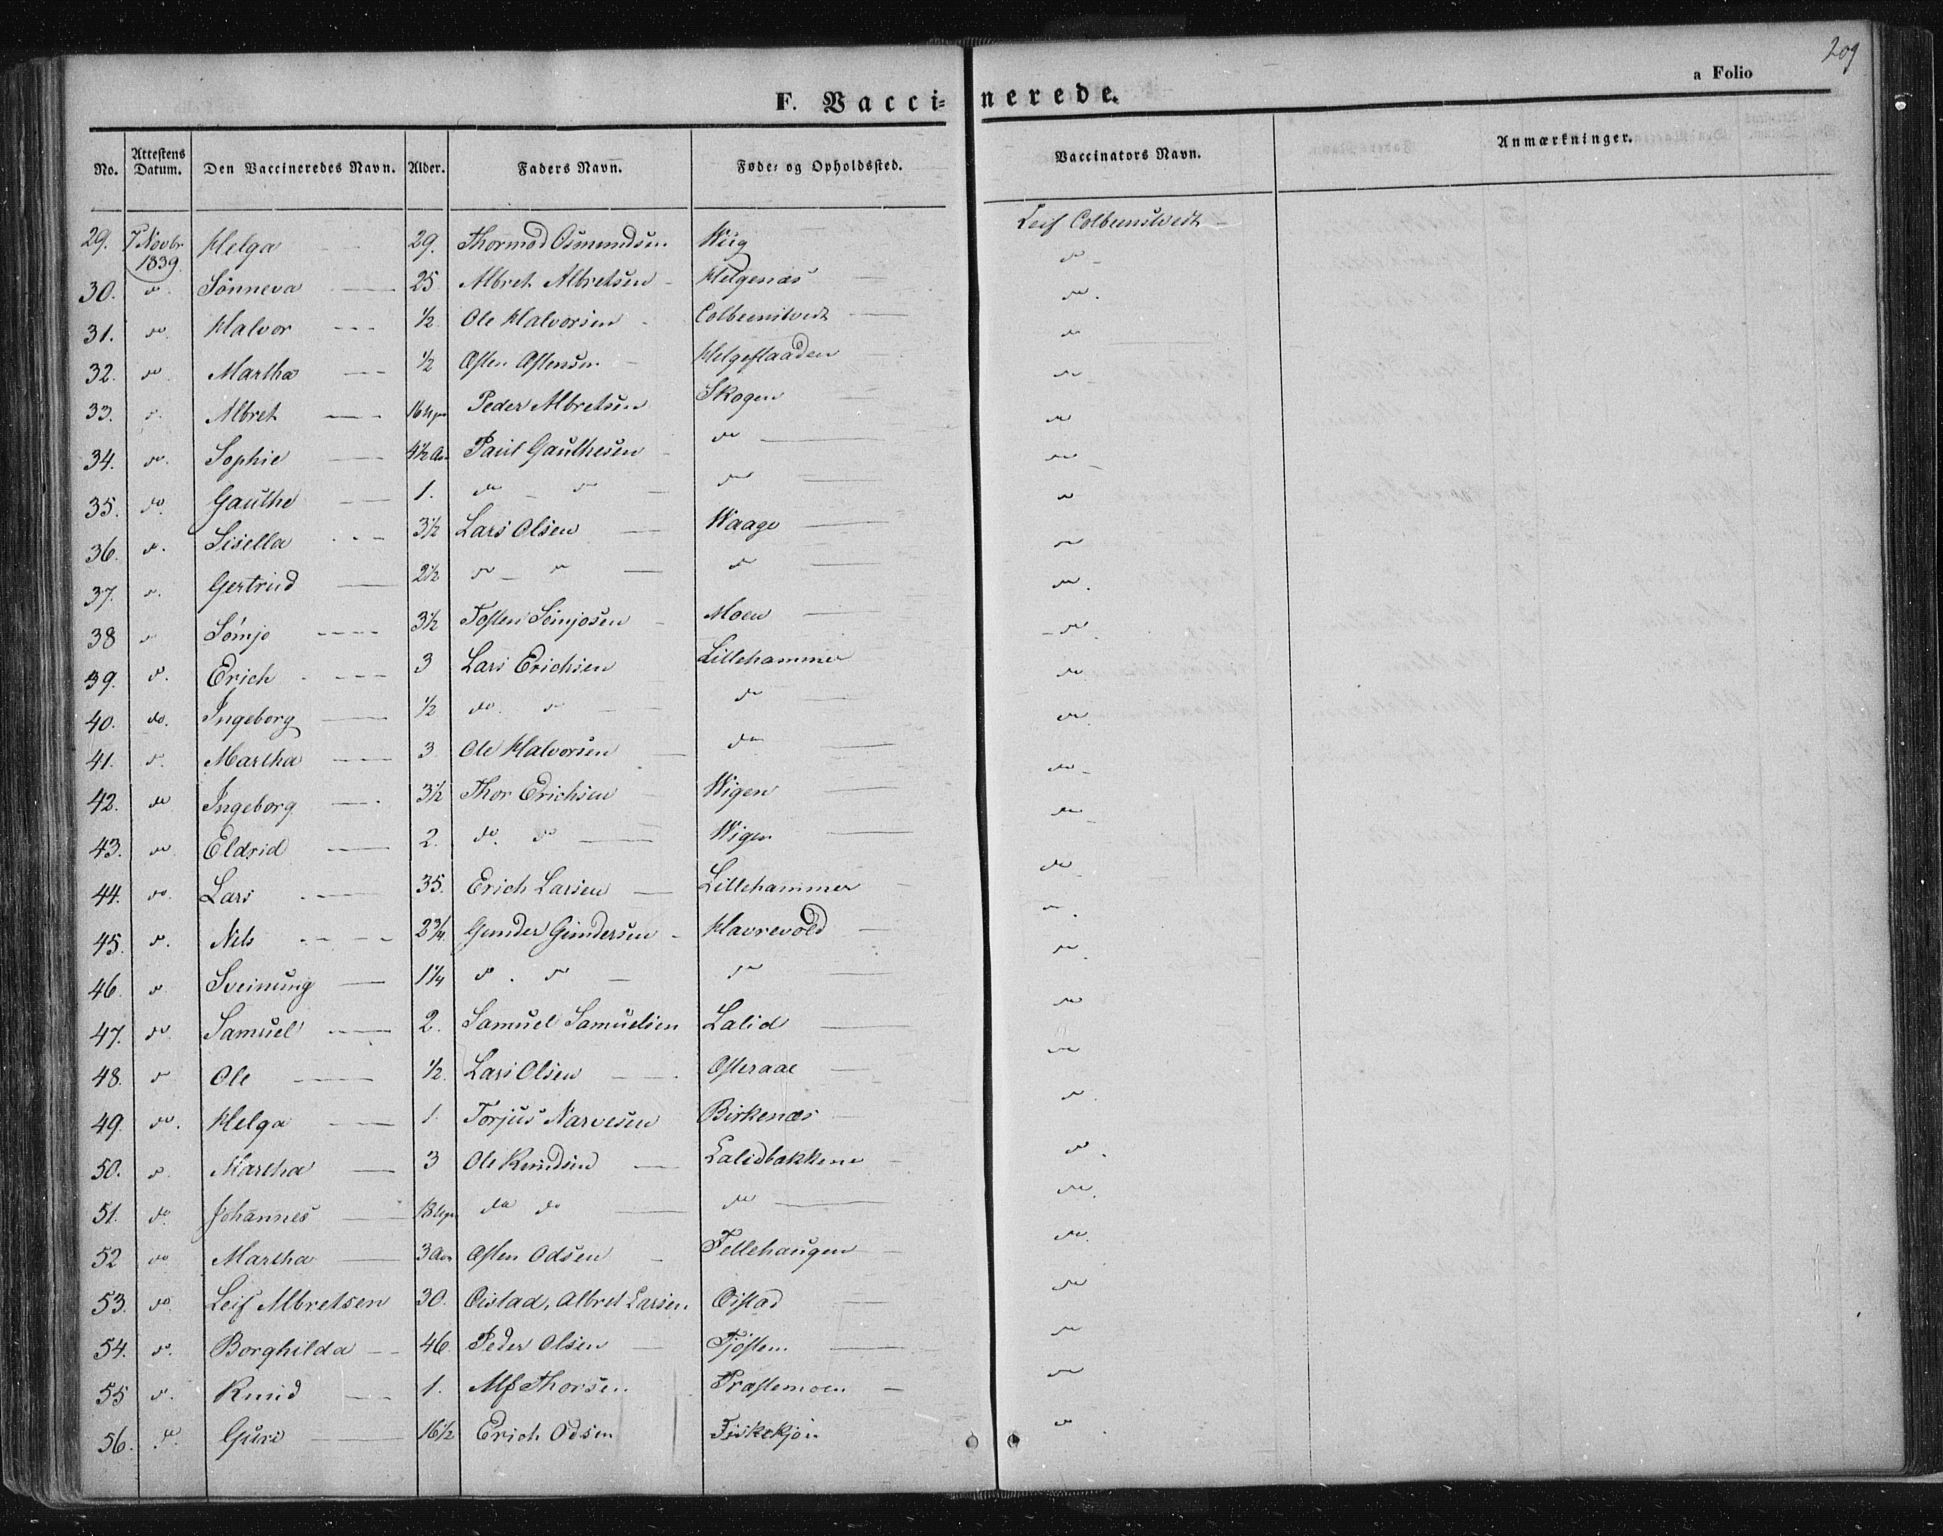 209
a Folio
F. Vaccinerede.
No. Attestens Datum. Den Vaccineredes Navn. Alder. Faders Navn. Føde- og Opholdssted. Vaccinators Navn. Anmærkninger.
29. 7 Novbr 1839 Helga 29. Thormod Osmundsen Wiig Leif Colbeenstvedt
30. do Sønneva 25 Albret Albretsen Helgenæs do
31. do Halvor 1/2 Ole Halvorsen Colbeenstvedt do
32. do Martha 1/2 Østen Østensen Helgeflaaden do
33. do Albret 16 Ugr Peder Albretsen Skogen do
34. do Sophie 4 1/2 Aar Paul Gauthesen do do
35. do Gauthe 1. do do do do
36. do Sisella 3 1/2 Lars Olsen Waage do
37. do Gertrud 2 1/2 do do do do
38 do Sømjo 3 1/2 Tosten Sømjosen Moen do
39. do Erich 3 Lars Erichsen Lillehammer do
40. do. Ingeborg 1/2 do. do do do
41. do Martha 3 Ole Halvorsen do do
42. do Ingeborg 3 1/2 Thor Erichsen Wigen do
43. do Eldrid 2. do. do Wigen do
44. do. Lars 35. Erich Larsen Lillehammer do
45. do. Nils 2 3/4 Gunder Gundersen Havrevold do
46. do Sveinung 1 1/4 do. do do do
47. do Samuel 2. Samuel Samuelsen Lalid do
48. do Ole 1/2. Lars Olsen Østeraae do
49. do. Helga 1. Torjus Narvesen Birkenæs do
50. do. Martha 3 Ole Knudsen Lalidbakkene do
51. do. Johannes 13 Ugr do do do do
52 do Martha 3 Aar Østen Odsen Fellehaugen do
53. do Leif Albretsen 30. Oistad, Albret Larsen Oistad do
54. do. Borghilda 46. Peder Olsen Tjösten do
55 do. Knud 1. Alf Thorsen Præstemoen do
56. do. Guri 16 1/2 Erich Odsen Fiskekjøn do